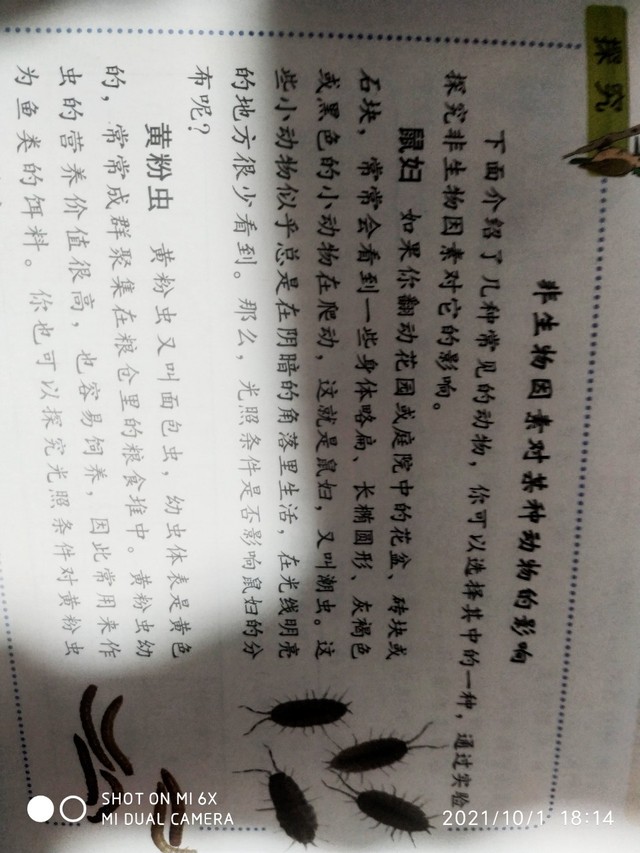 探究
非生物因素对某种动物的影响
下面介绍了几种常见的动物，你可以选择其中的一种，通过实验
探究非生物因素对它的影响。
鼠妇 如果你翻动花园或庭院中的花盆、砖块或
石块，常常会看到一些身体略扁、长椭圆形、灰褐色
或黑色的小动物在爬动，这就是鼠妇，又叫潮虫。这
些小动物似乎总是在阴暗的角落里生活，在光线明亮
的地方很少看到。那么，光照条件是否影响鼠妇的分
布呢？
黄粉虫 黄粉虫又叫面包虫，幼虫体表是黄色
的，常常成群聚集在粮仓里的粮食堆中。黄粉虫幼
虫的营养价值很高，也容易饲养，因此常用来作
为鱼类的饵料。你也可以探究光照条件对黄粉虫
SHOT ON MI 6X
MI DUAL CAMERA
2021/10/1 18:14